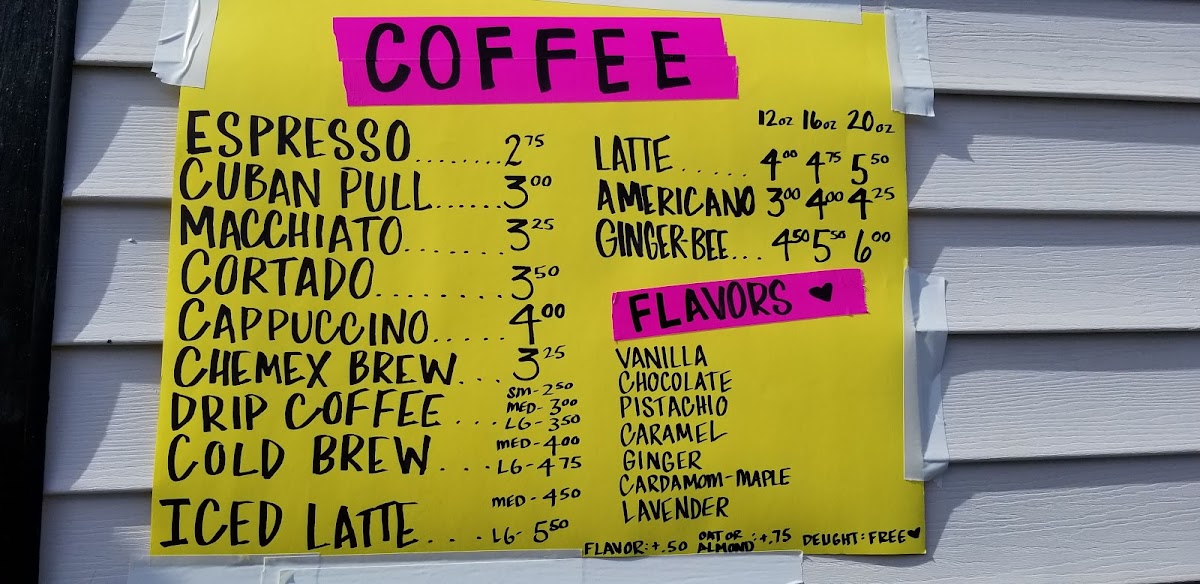 COFFEE
ESPRESSO........2.75
CUBAN PULL......3.00
MACCHIATO.......3.25
CORTADO.........3.50
CAPPUCCINO......4.00
CHEMEX BREW...3.25
DRIP COFFEE....SM-2.50
MED-3.00
LG-3.50
COLD BREW....MED-4.00
LG-4.75
ICED LATTE....MED-4.50
LG-5.50
12oz 16oz 20oz
LATTE..... 4.00 4.75 5.50
AMERICANO 3.00 4.00 4.25
GINGER-BEE... 4.50 5.50 6.00
FLAVORS ♥
VANILLA
CHOCOLATE
PISTACHIO
CARAMEL
GINGER
CARDAMOM-MAPLE
LAVENDER
FLAVOR:+.50 OAT OR ALMOND:+.75 DELIGHT:FREE♥